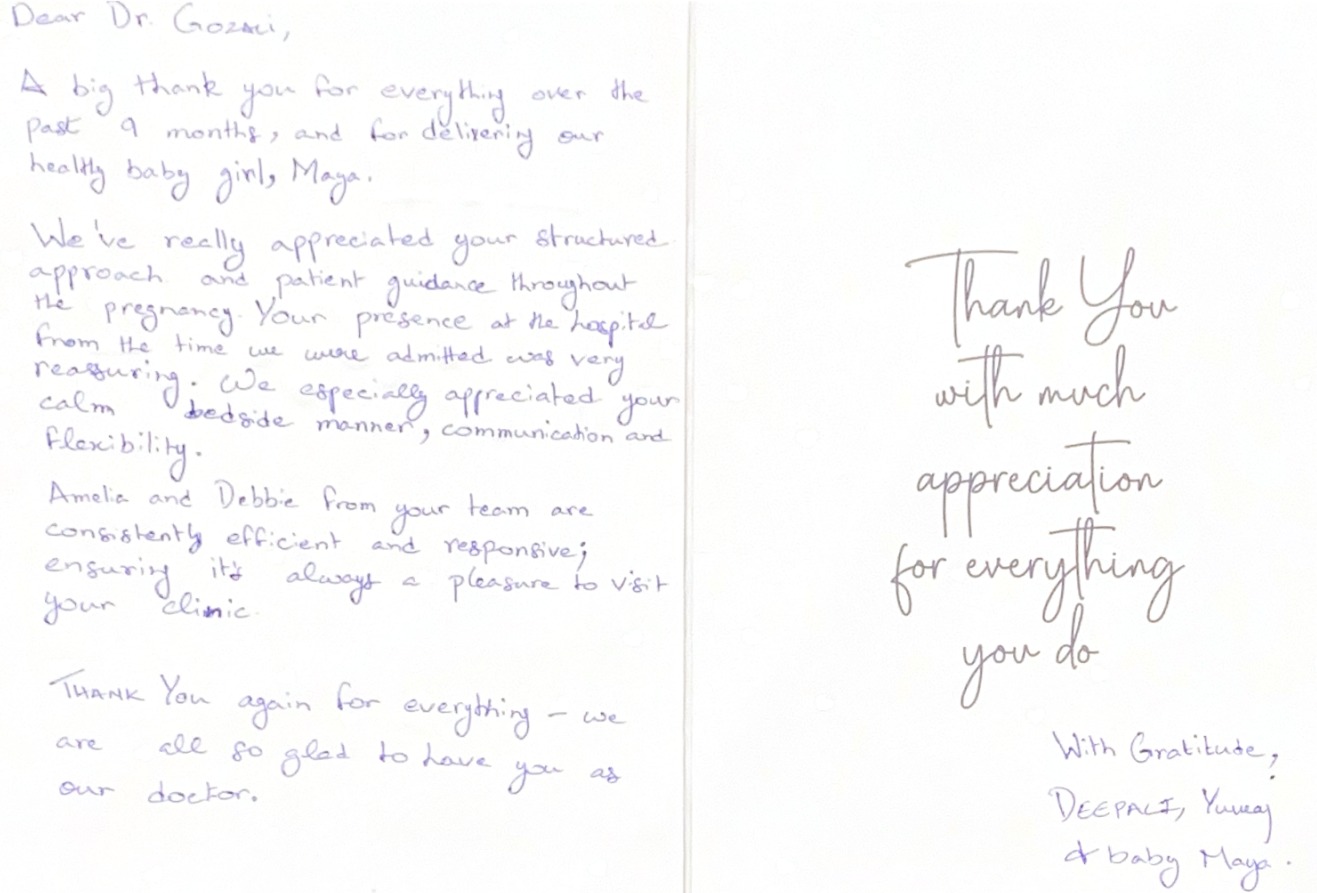 Dear Dr. Gozali,
A big thank you for everything over the
past 9 months, and for delivering our
healthy baby girl, Maya.
We've really appreciated your structured
approach and patient guidance throughout
the pregnancy. Your presence at the hospital
from the time we were admitted was very
reassuring. We especially appreciated your
calm bedside manner, communication and
flexibility.
Amelia and Debbie from your team are
consistently efficient and responsive;
ensuring it's always a pleasure to visit
your clinic.
THANK You again for everything – we
are all so glad to have you as
our doctor.
Thank You
with much
appreciation
for everything
you do
With Gratitude,
DEEPALI, Yuvraj
& baby Maya.